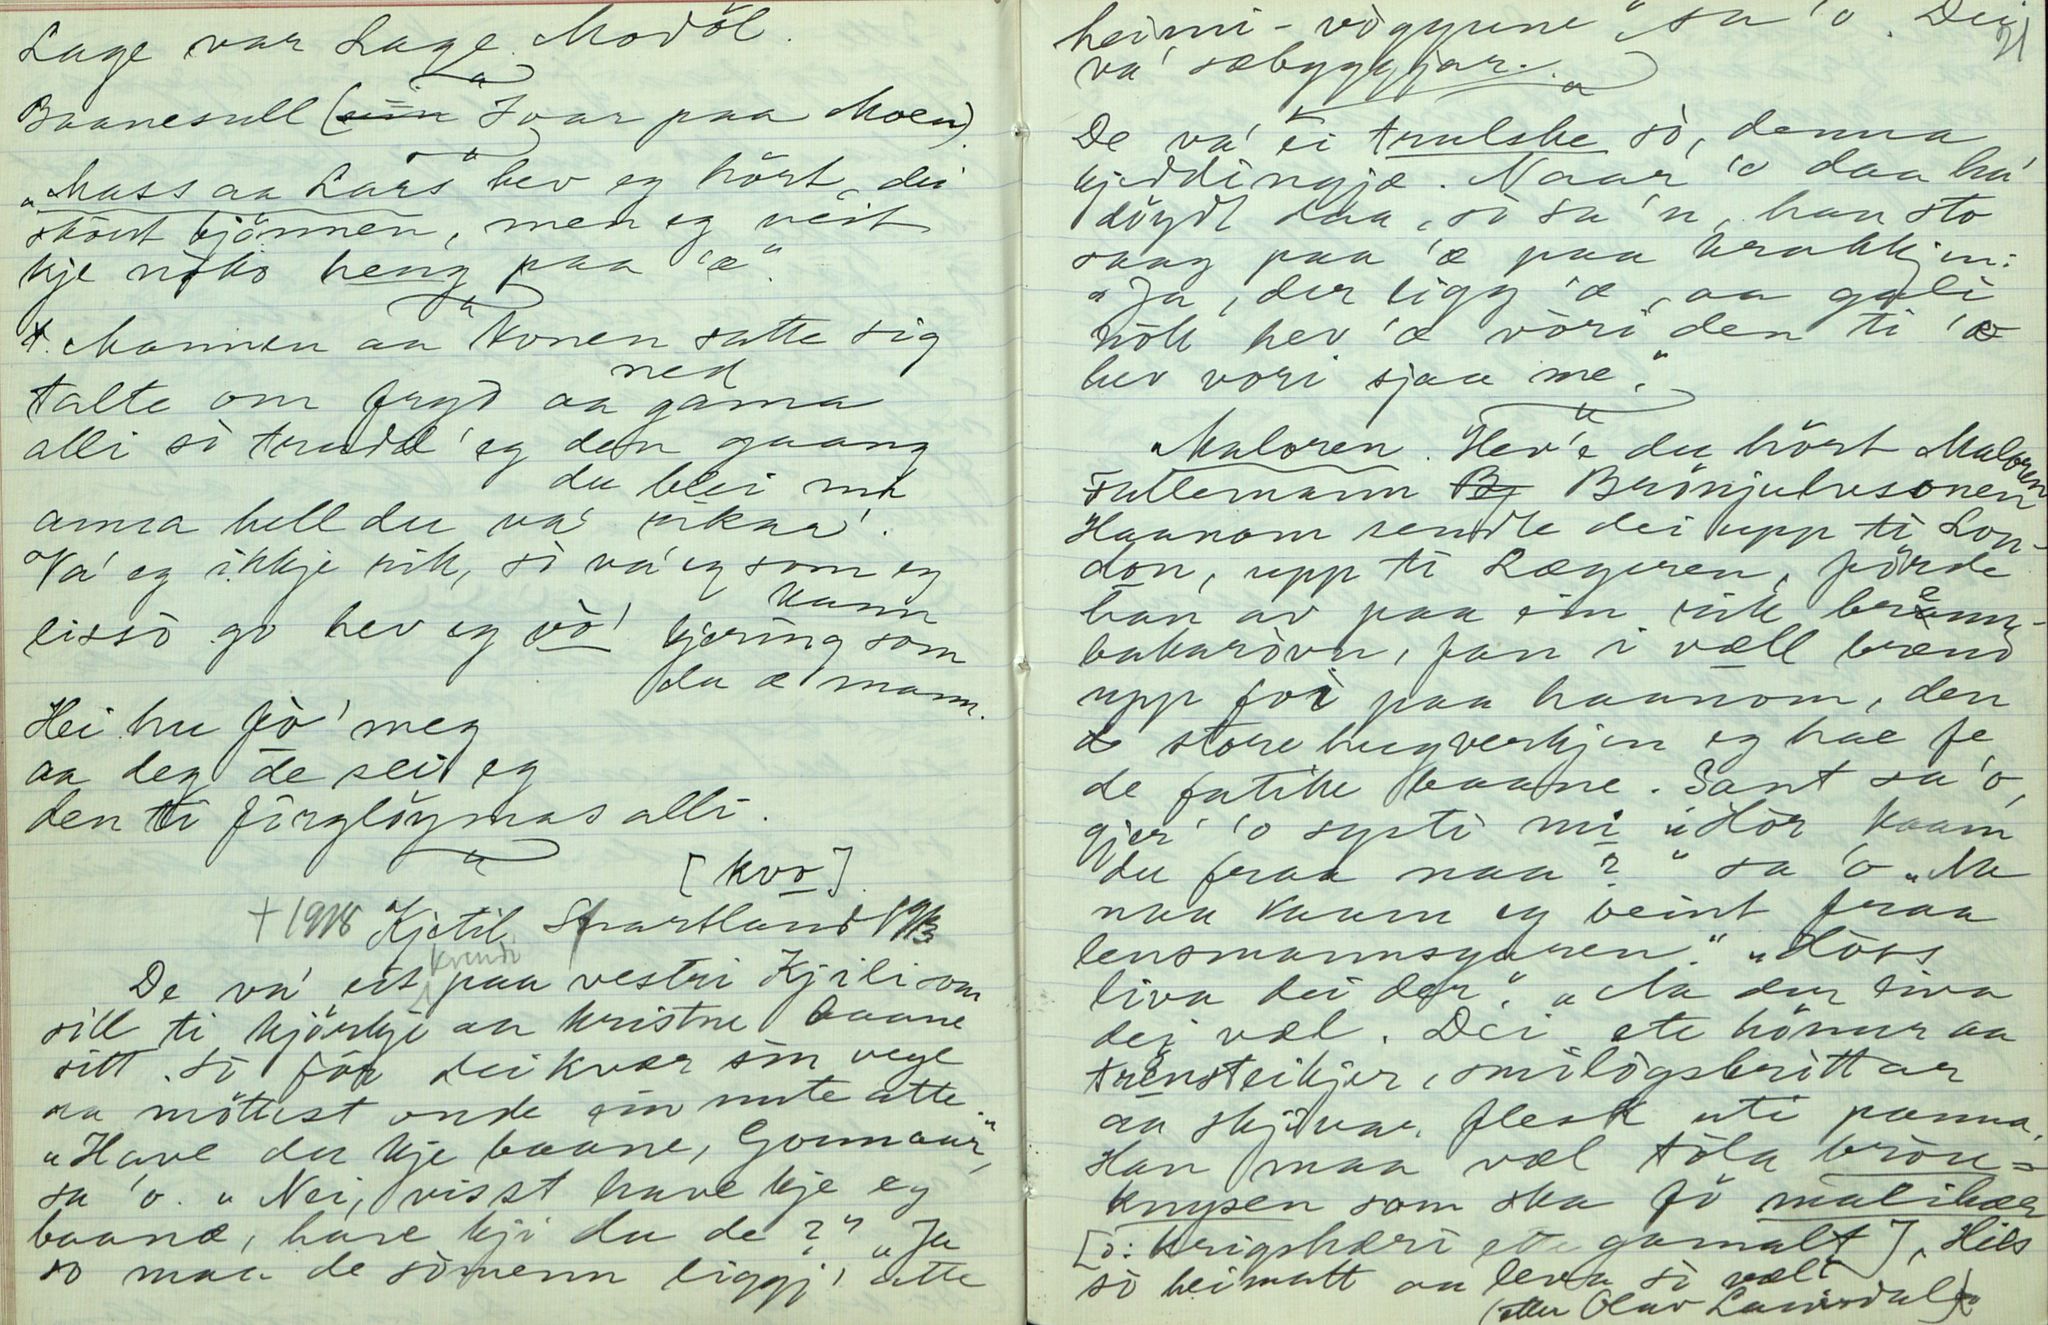 Lage var Lage Modöl.
Baanesull (Ivar paa Moen)
"Mass aa Lars hev eg hört, dei
skaut bjönnen, men eg veit
kje noko heng paa 'æ".
Mannen aa Konen satte sig
ned
talte om fryd aa gama
alli so trudd' eg den gaang
du blei mi
anna hell du va' rikaa'.
Va' eg ikkje rik, so va' eg som eg
kann
lisso go hev eg vo' kjering som
du æ mann.
Hei hu fö' meg
aa deg de sei eg
den ti förglöymas alli.
[kvo]
+1918 Kjetil Skartland 1913
kvende
De va' eit paa vestri Kjili som
sill ti kjörkje aa kristne baane
sitt. So för dei kvær sin vege
aa möttest onde ein nute atte.
"Have du kje baane, Gonnaar",
sa 'o. "Nei, visst have kje eg
baane, have kji du de?" "Ja
so maa de somenn liggj' atte
heimi-vöggunne" sa 'o. Dei 21
va' sæbyggjar.
De va' ei trulske so, denna
kjeddingjæ. Naar 'o daa ha'
döydt daa, so sa 'n, han sto
saag paa 'æ paa krakkjen:
"Ja, der ligg 'æ, aa gali
nok hev 'æ vori den ti 'æ
hev vori sjaa me".
"Maloren. Hev'e du hört Maloren
Fullemann Brönjulvsonen
Haanom sendte dei upp ti Lon-
don, upp ti Lægeren, förde
han av paa ein rik brenn-
bakarovn, fan i væll brend
upp foi paa haanom, den
store hugverkjen eg hae fe
de fatike baane. Sant sa 'o,
gjer' 'o systi mi "Hör kaam
du fraa naa?" sa 'o "Na
naa kaam eg beint fraa
lensmannsgaren." "Hoss
liva dei der". "Na der liva
dei væl. Dei ete hönur aa
trensteikjer, smilogsbrittar
aa skjivar, flesk uti panna.
Han maa væl tola brön-
knysen som ska fö malihær
[ɔ: krigshæri ete gamalt], Hels
so heimatt aa leva so væl"
(etter Olav Lauvsdal)